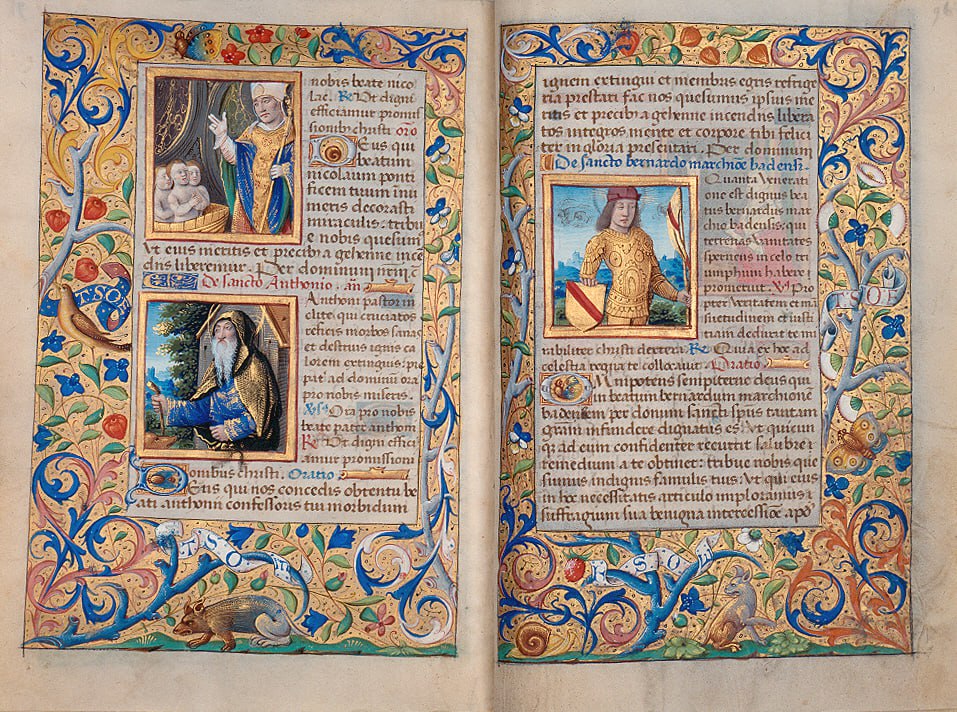 nobis beate nico
lae. Rꝫ Ut digni
efficiamur promis
sionibꝫ christi oro
Deus qui
beatum
nicolaum ponti
ficem tuum innu
meris decorasti
miraculis: tribu
e nobis quesumꝰ
Ut eius meritis et precibꝫ a gehenne ince
diis liberemur. Per dominum
De sancto Anthonio. an
Anthoni pastor in
clite qui cruciatos
reficis morbos sanas
et destruis ignis ca
lorem extinguis: pie
pat ad dominum ora
pro nobis miseris.
Ora pro nobis
beate pater anthoni
Rꝫ Ut digni effici
amur promissioni
onibus christi. Oratio
Deus qui nos concedis obtentu be
ati anthonii confessoris tui morbidum
TSOR
TSO
ignem extingui et membris egris refrige
ria prestari fac nos quesumus ipsius me
ritis et precibꝫ a gehenne incendiis libera
tos integros mente et corpore tibi felici
ter in gloria presentari. Per dominum
De sancto bernardo marchiōe badensi.
Quanta venerati
one est dignus bea
tus bernardus mar
chio badensis: qui
terrenas vanitates
spernens in celo tri
umphum habere
promeruit. Pro
pter veritatem et mā
suetudinem et iusti
tiam deducet te mi
rabiliter christi dextera. Rꝫ Quia ex hoc ad
celestia regna te collocauit. Oratio
Omnipotens sempiterne deus qui
in beatum bernardum marchionē
badensem per donum sancti spūs tantam
gram infundere dignatus es: Ut quicun
qꝫ ad eum confidenter recurrit salubre
remedium a te obtinet: tribue nobis que
sumus indignis famulis tuis: Ut qui eius
in hoc necessitatis articulo imploramus
suffragium sua benigna intercessiōe apō
SO
RSOL